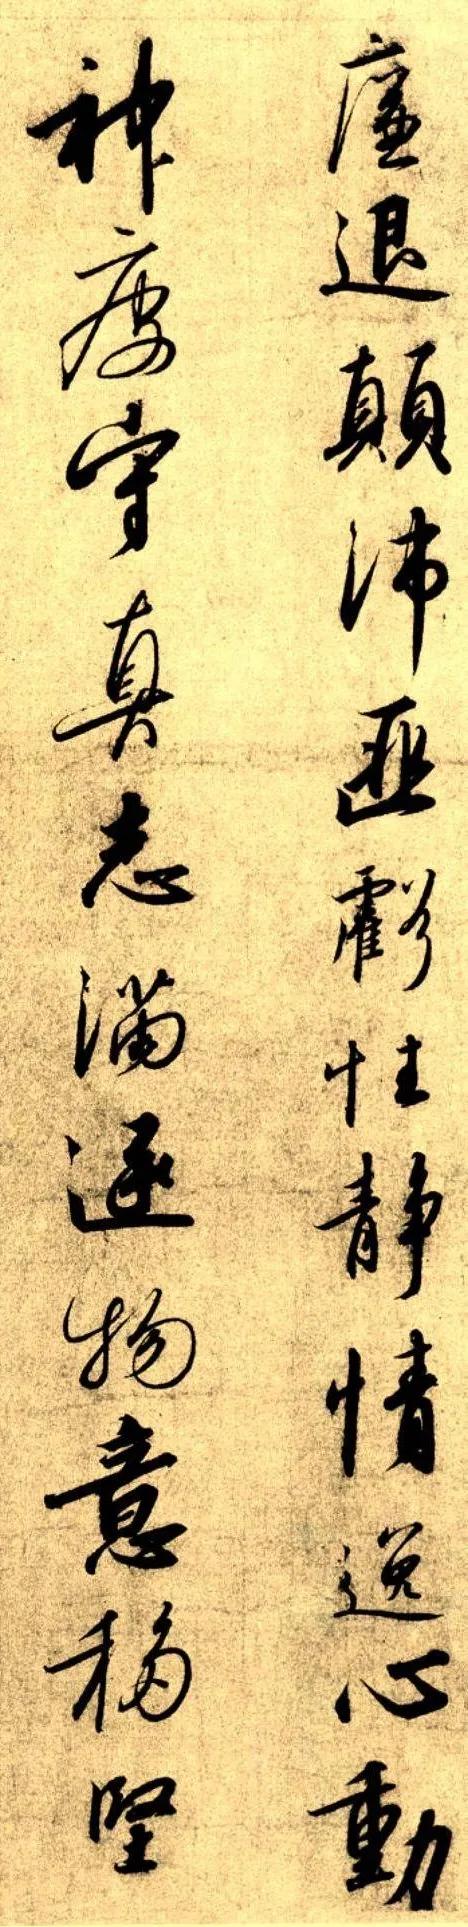 廉退顛沛匪虧性靜情逸心動
神疲守真志滿逐物意移堅